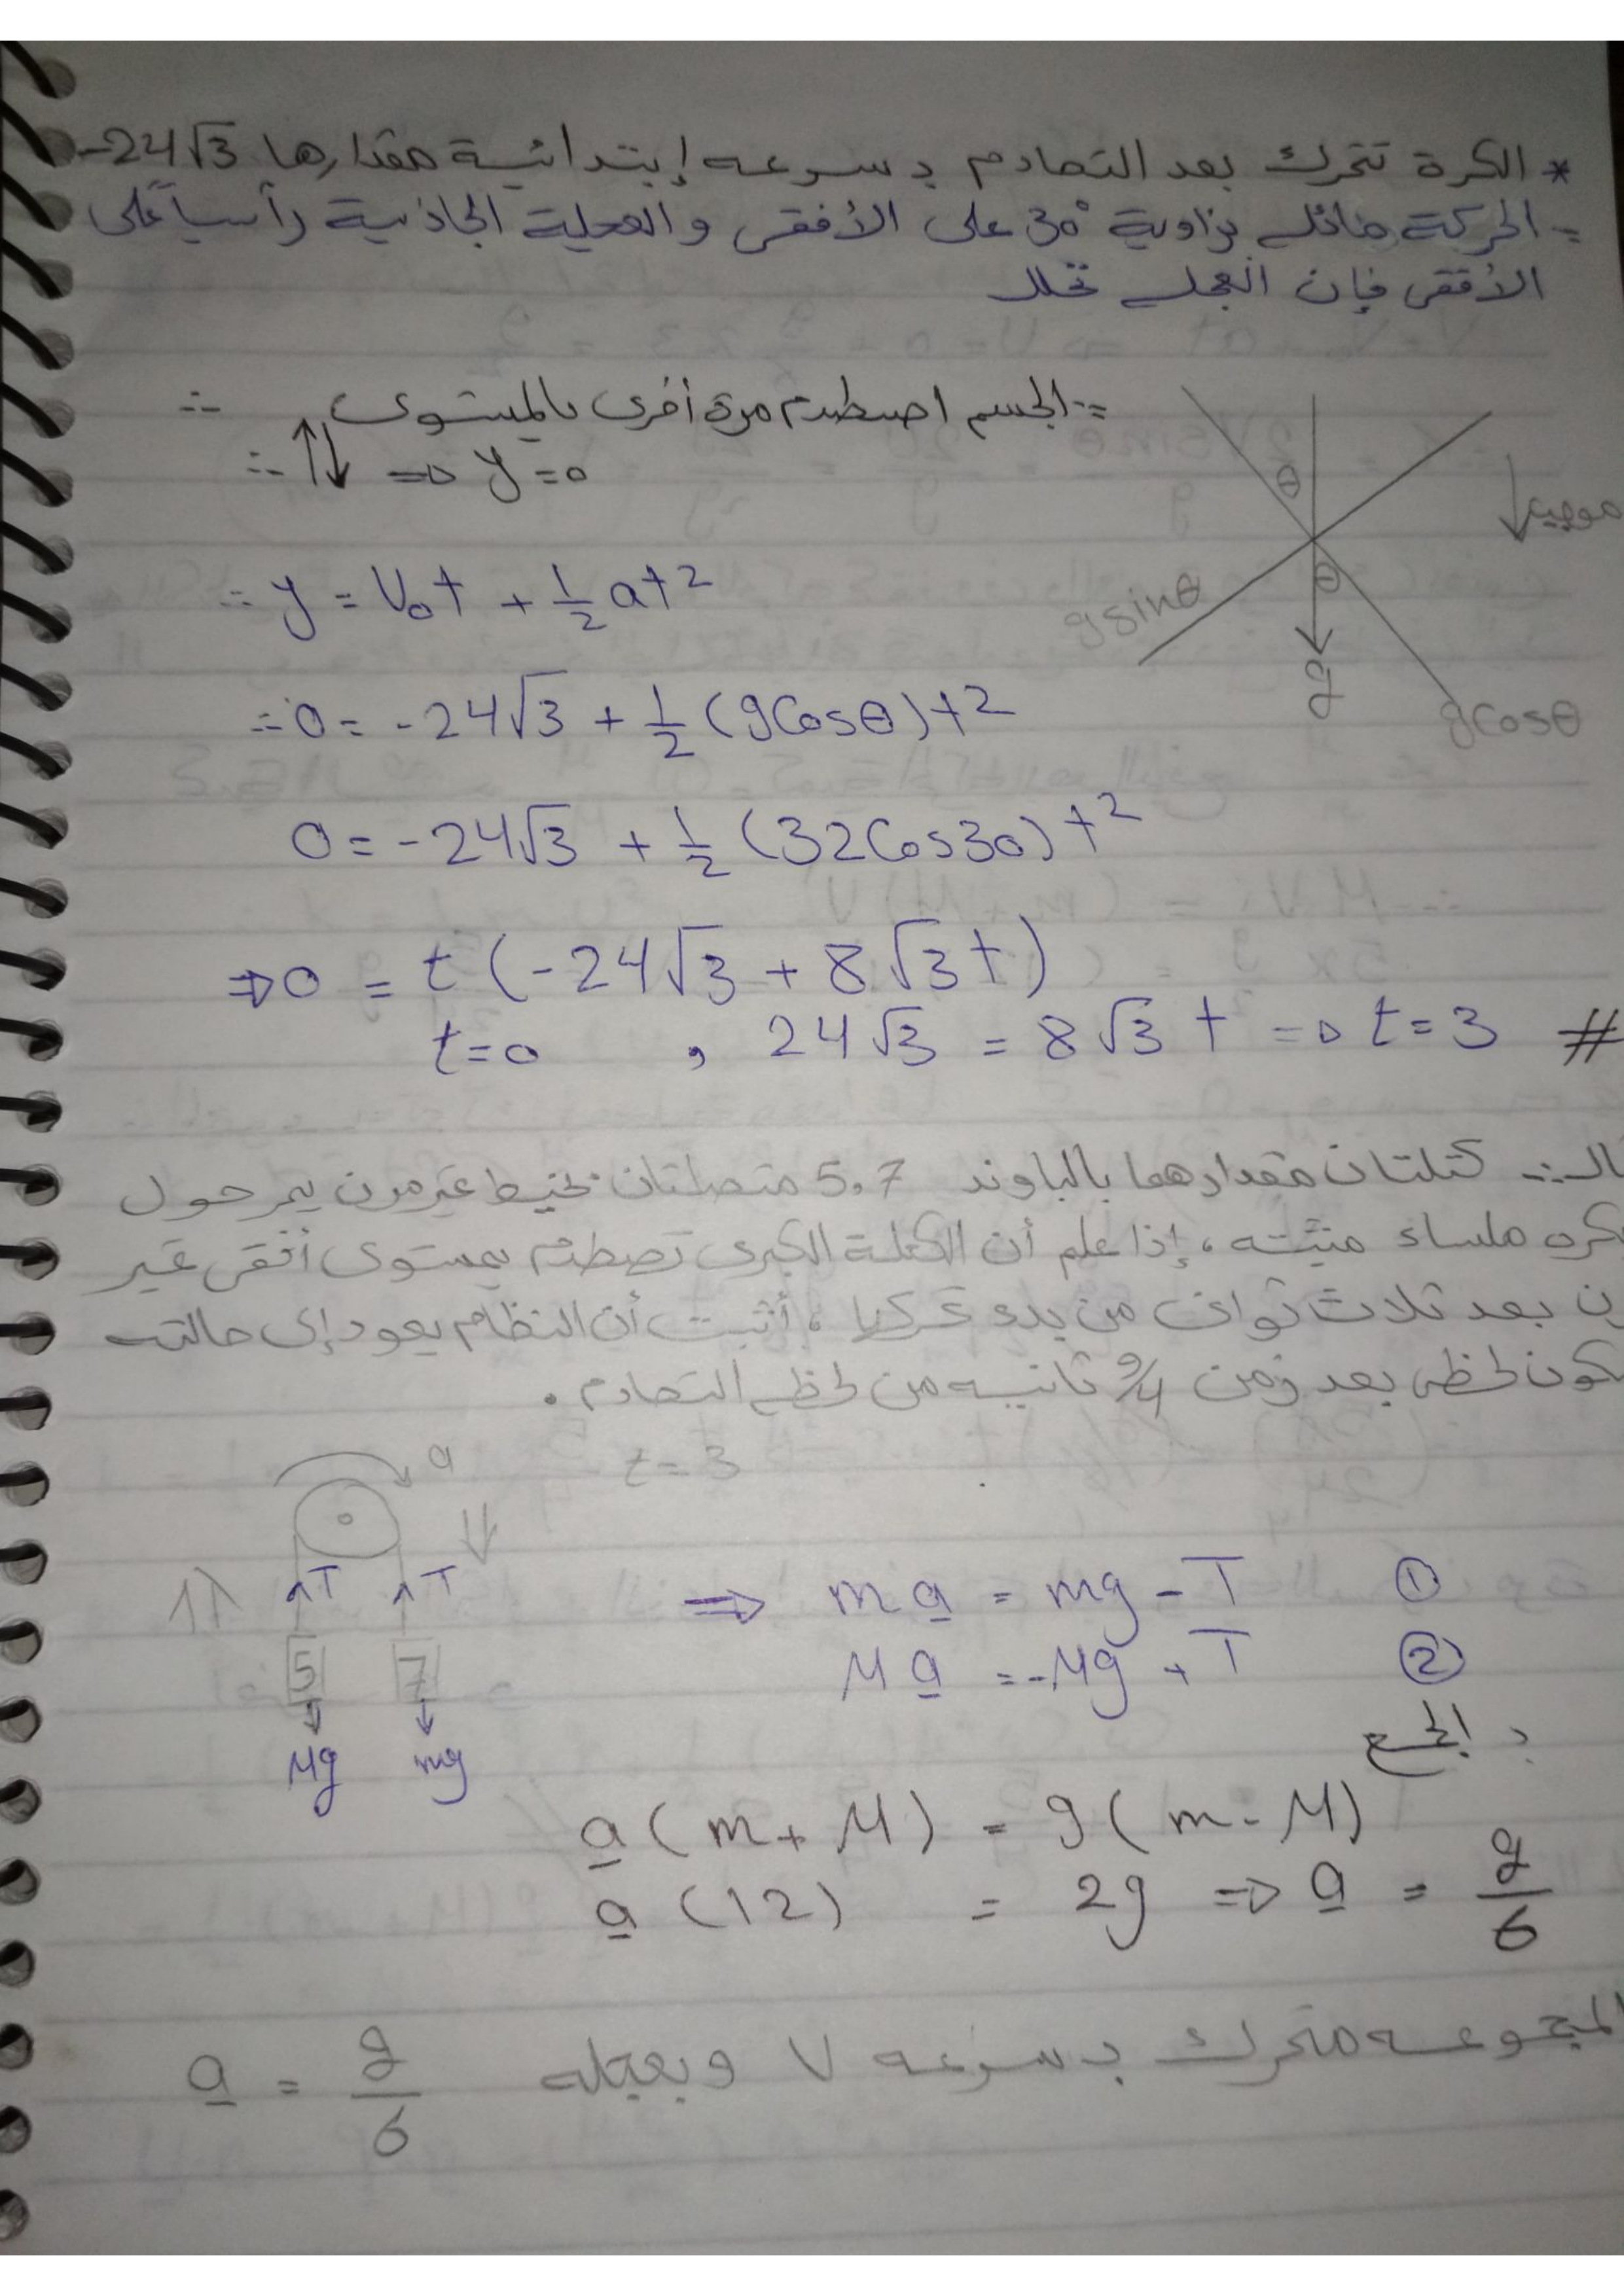 * الكرة تتحرك بعد التصادم بسرعه إبتدائية مقدارها -24√3
∵ الحركة مائله بزاوية 30° على الأفقى والعجلة الجاذبية رأسياً على
الأفقى فإن العجله تحلل
∵ الجسم اصطدم مرة أخرى بالمستوى ∴
∴ ↑↓ ⇒ y = 0
θ
موجبه ↓
θ
g sinθ
g
g cosθ
∴ y = V₀t + 1/2 at²
∴ 0 = -24√3 + 1/2 (g Cosθ)t²
0 = -24√3 + 1/2 (32 Cos30)t²
⇒ 0 = t (-24√3 + 8√3 t)
t = 0 , 24√3 = 8√3 t ⇒ t = 3 #
كتلتان مقدارهما بالباوند 5,7 متصلتان بخيط غير مرن يمر حول
بكره ملساء مثبته، إذا علم أن الكتلة الكبرى تصطدم بمستوى أفقى غير
مرن بعد ثلاث ثوانى من بدء تحركها، أثبت أن النظام يعود إلى حالته
سكون لحظى بعد زمن 9/4 ثانيه من لحظه التصادم.
a
t = 3
↑↑ T T ↓↓
5 7
Mg mg
⇒ ma = mg - T ①
Ma = -Mg + T ②
بالجمع
a (m + M) = g (m - M)
a (12) = 2g ⇒ a = g/6
المجموعه تتحرك بسرعه V وبعجله a = g/6